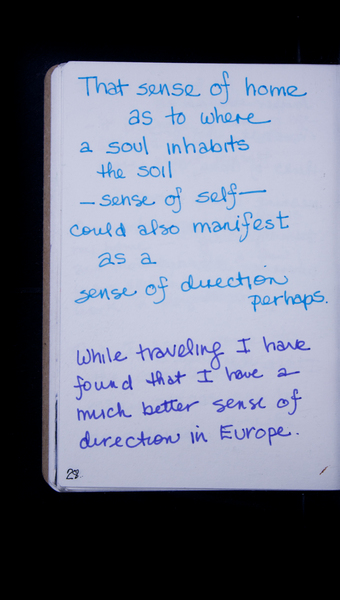 That sense of home
as to where
a soul inhabits
the soil
– sense of self –
could also manifest
as a
sense of direction
perhaps.
While traveling I have
found that I have a
much better sense of
direction in Europe.
28